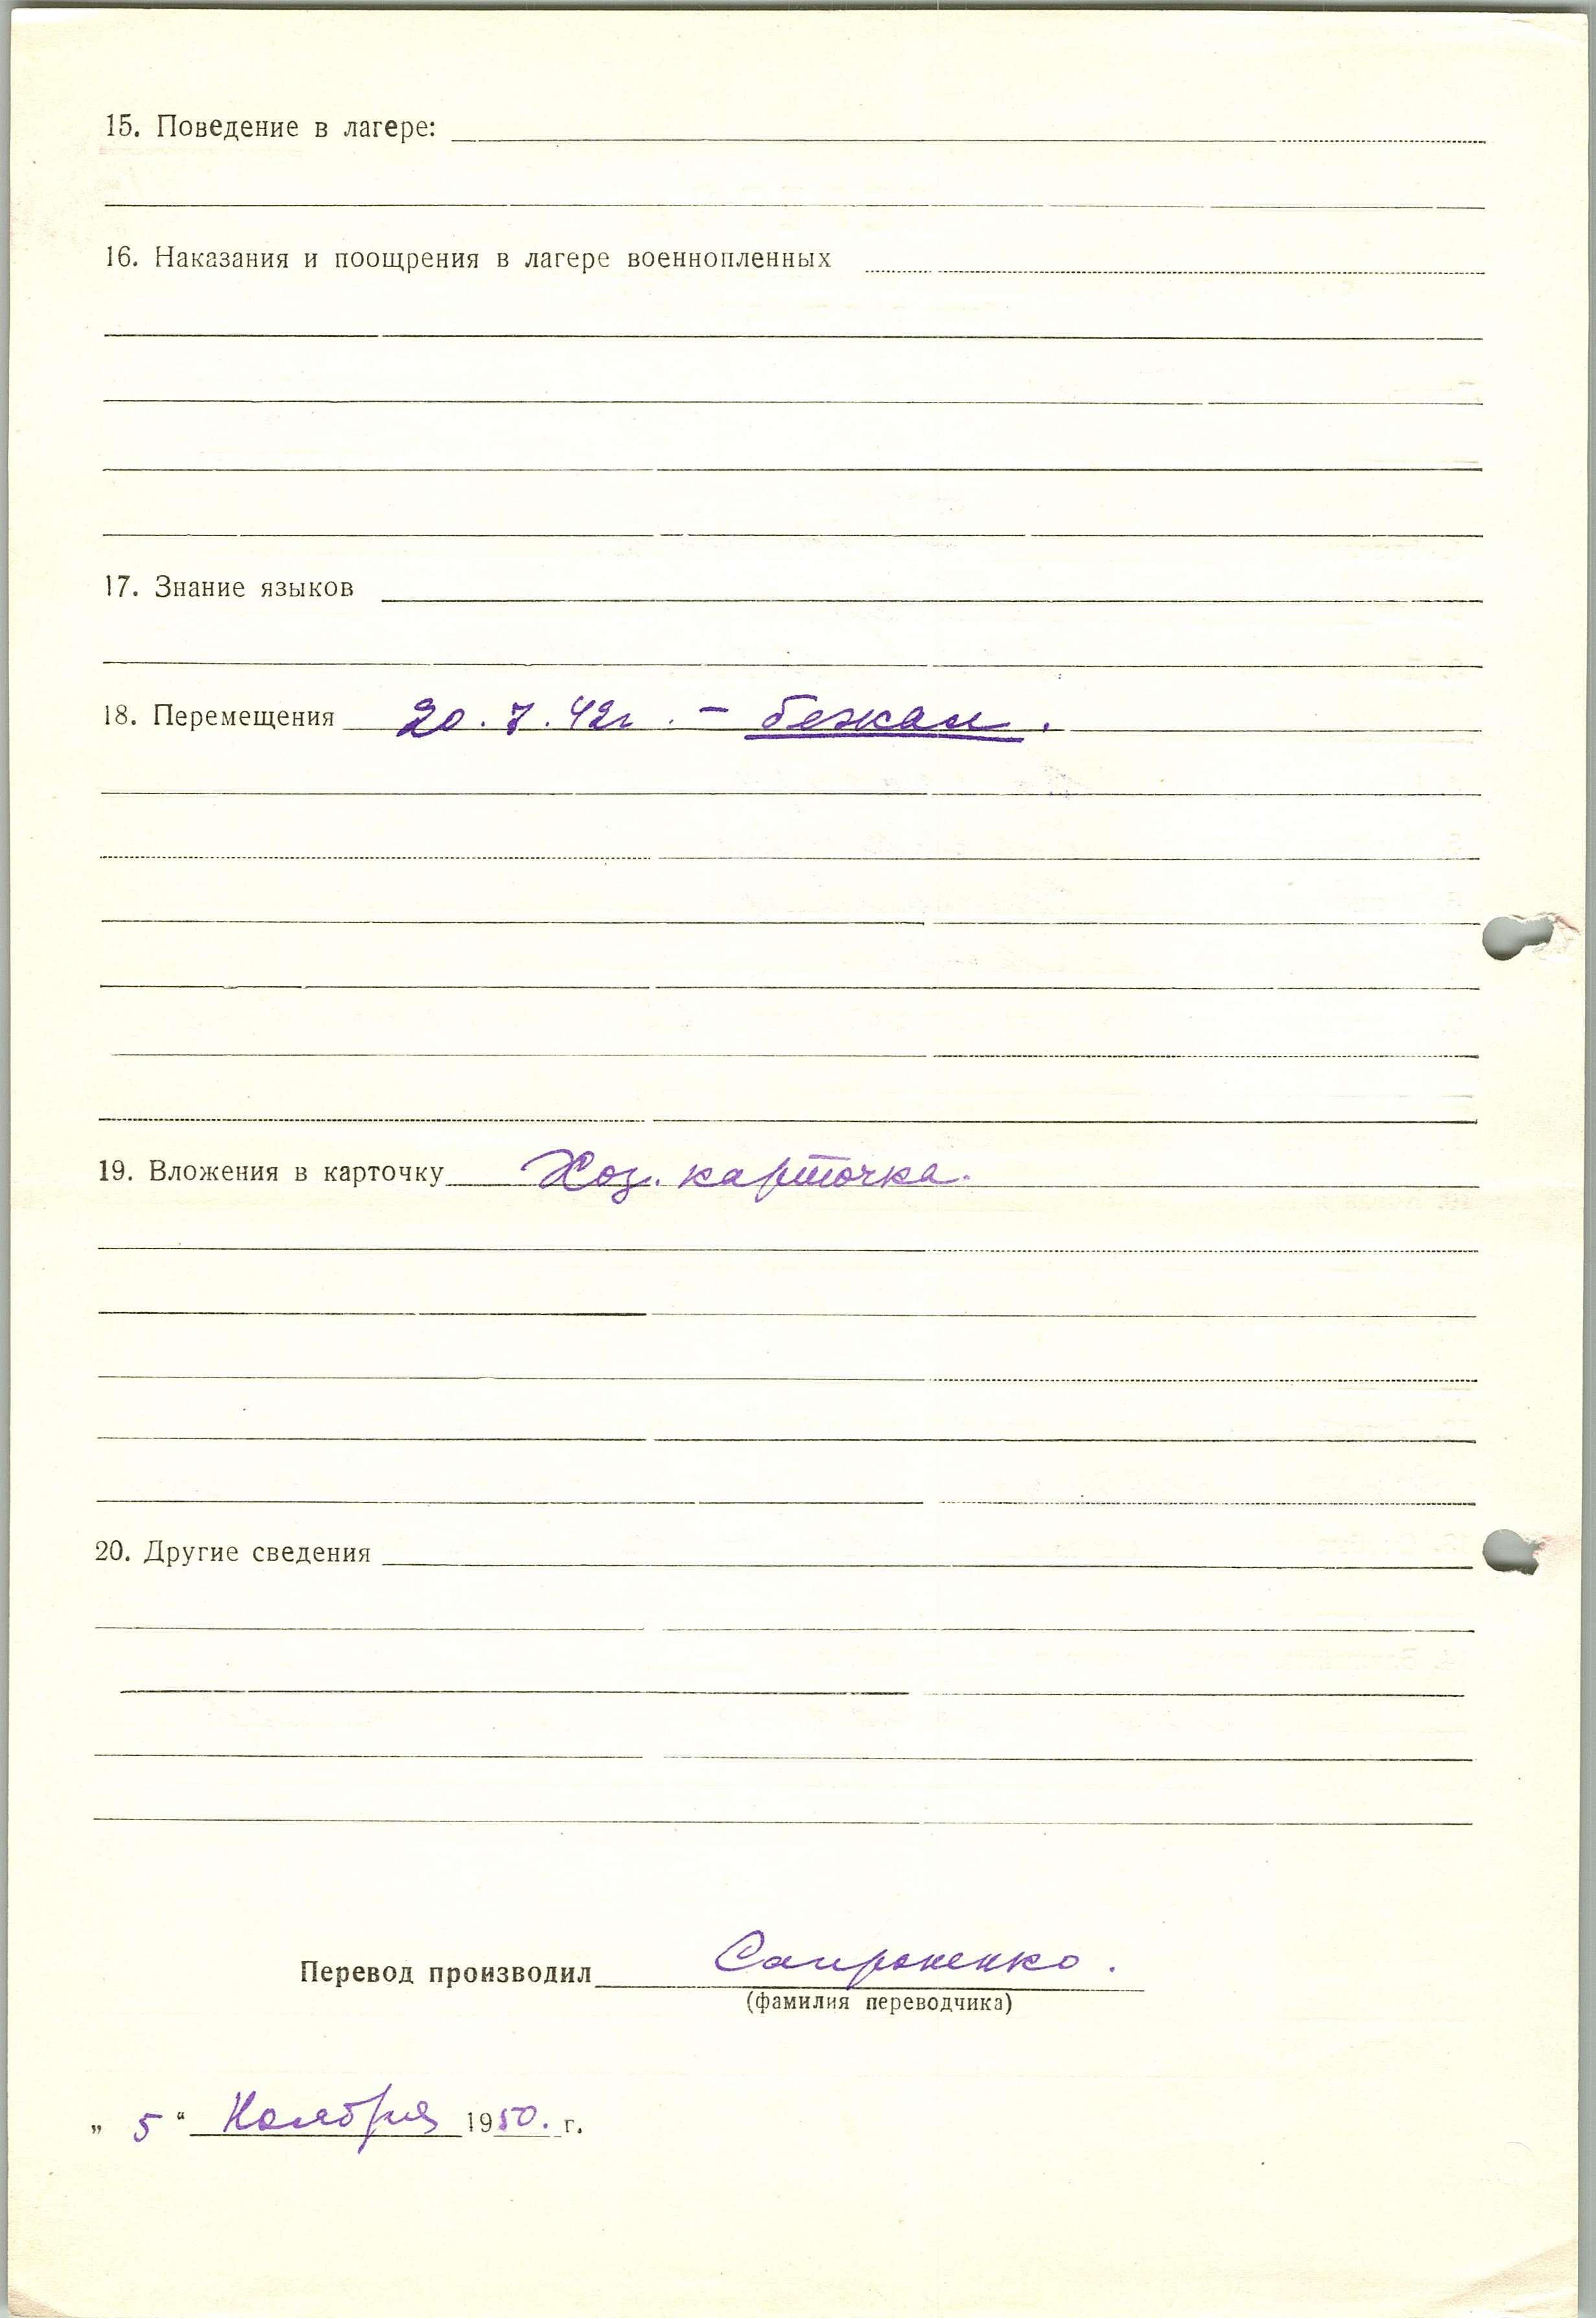 15. Поведение в лагере:
16. Наказания и поощрения в лагере военнопленных
17. Знание языков
18. Перемещения 20.7.42г. - бежал.
19. Вложения в карточку Хоз. карточка.
20. Другие сведения
Перевод производил Сапроненко.
(фамилия переводчика)
„ 5 “ Ноября 1950. г.